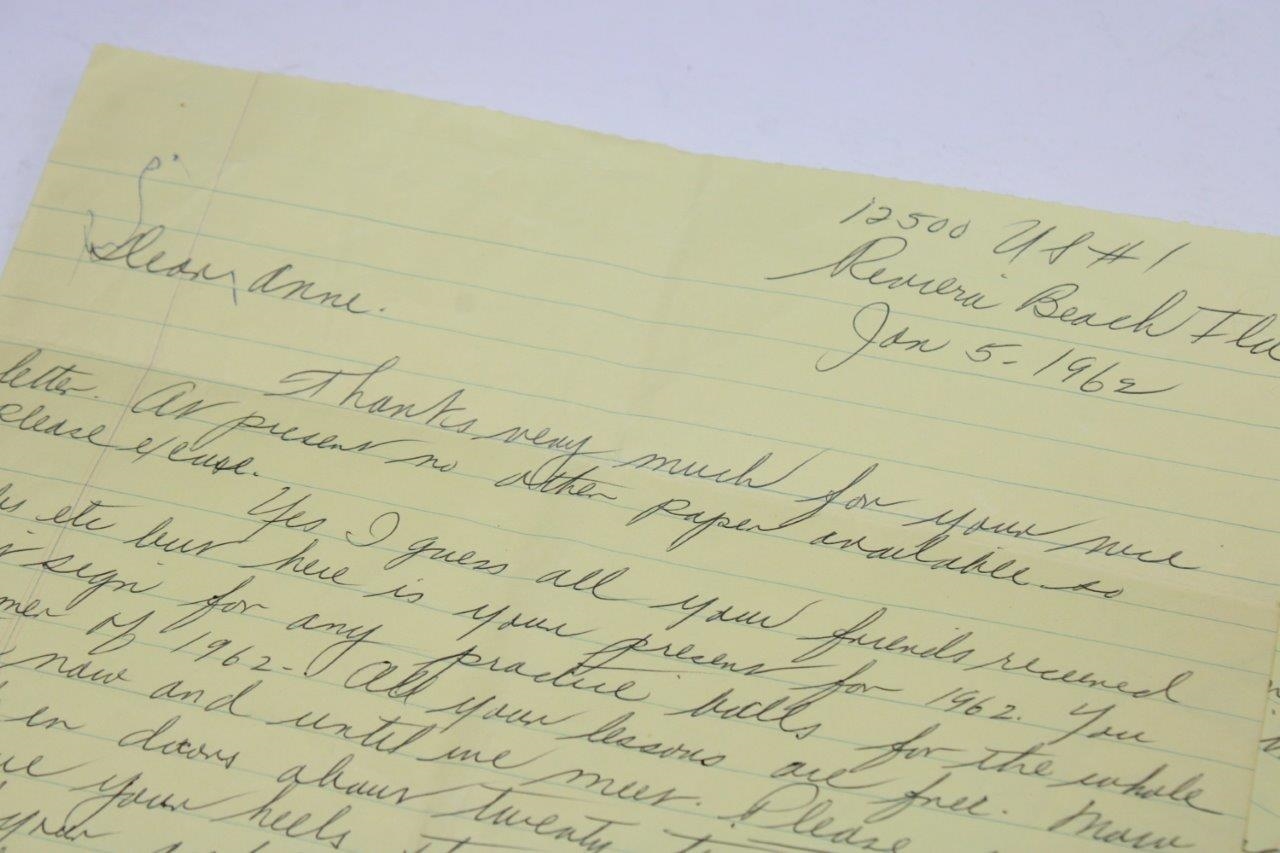 12500 US #1
Reviera Beach Fla
Jan 5 - 1962
Dear Anne.
Thanks very much for your nice
letter. At present no other paper available so
please excuse.
Yes I guess all your friends received
etc but here is your present for 1962. You
sign for any practice balls for the whole
mer of 1962 - All your lessons are free. Now
now and until we meet. Please
in doors about twenty
your heels
your